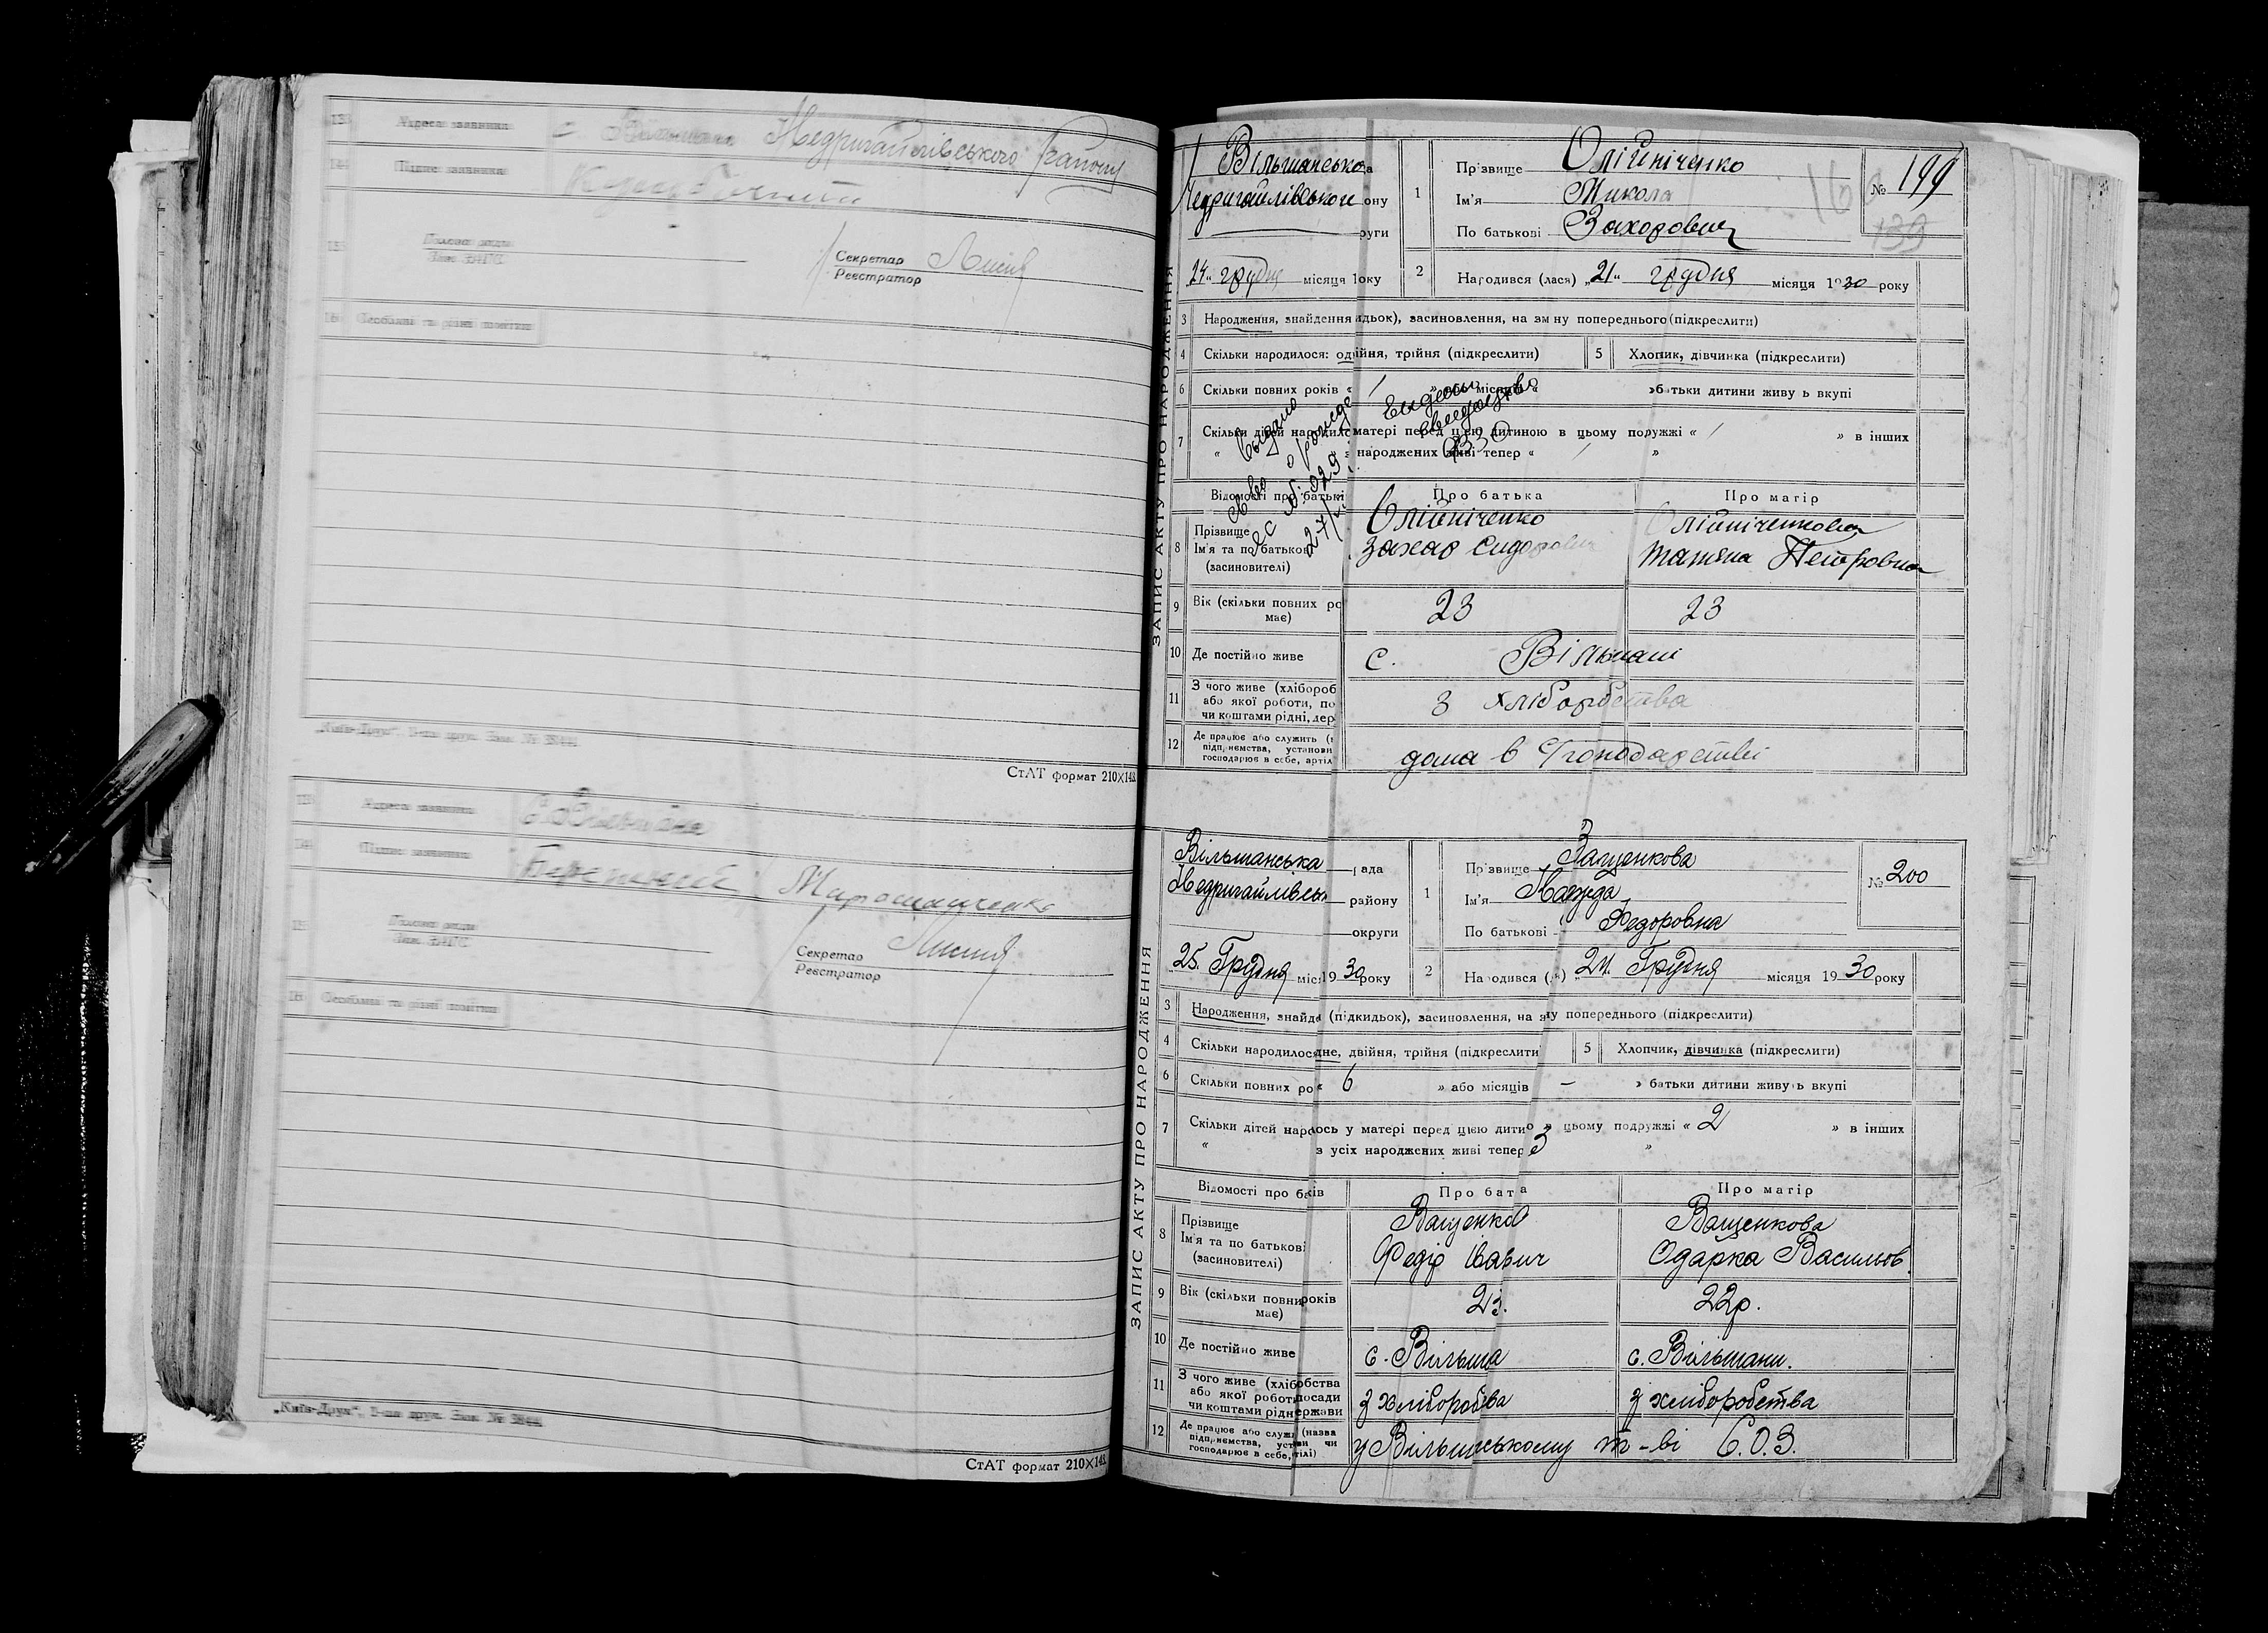 13 Адреса заявника с. Недригайлівського району
14 Підпис заявника
15 Голова ради
Зав. ЗАГС
Секретар
Реєстратор
16 Особливі та різні помітки
„Київ-Друк“, 1-ша друк. Зам. №
СтАТ формат 210×148
13 Адреса заявника
14 Підпис заявника Мирошниченко
15 Голова ради
Зав. ЗАГС
Секретар
Реєстратор
16 Особливі та різні помітки
„Київ-Друк“, 1-ша друк. Зам. №
СтАТ формат 210×148
ЗАПИС АКТУ ПРО НАРОДЖЕННЯ
Вільшанська
Недригайлівського ону
руги
24 грудня місяця року
1 Прізвище Олійніченко
Ім'я Микола
По батькові Захорович
№ 199
139
2 Народився (лася) „21“ грудня місяця 1930 року
3 Народження, знайдення идьок), засиновлення, на зміну попереднього (підкреслити)
4 Скільки народилося: од ійня, трійня (підкреслити) 5 Хлопчик, дівчинка (підкреслити)
6 Скільки повних років « 1 » або місяців « » батьки дитини живуть вкупі
7 Скільки дітей народило матері перед цією дитиною в цьому подружжі « 1 » в інших
« » з народжених живі тепер « 1 »
Відомості про батьків Про батька Про матір
8 Прізвище
Ім'я та по батькові
(засиновителі)
Олійніченко
Захар Сидорович
Олійніченкова
Татяна Петровна
9 Вік (скільки повних ро
має) 23 23
10 Де постійно живе с. Вільшані
11 З чого живе (хлібороб
або якої роботи, по
чи коштами рідні, дер
З хліборобства
12 Де працює або служить (н
підприємства, установи
господарює в себе, артіл
дома в господарстві
ЗАПИС АКТУ ПРО НАРОДЖЕННЯ
Вільшанська рада
Недригайлівськ району
округи
25. Грудня міс 1930 року
1 Прізвище Ващенкова
Ім'я Надежда
По батькові Федоровна
№ 200
2 Народився (ля) 24. Грудня місяця 1930 року
3 Народження, знайде (підкидьок), засиновлення, на зну попереднього (підкреслити)
4 Скільки народилося дне, двійня, трійня (підкреслити 5 Хлопчик, дівчинка (підкреслити)
6 Скільки повних ро « 6 » або місяців – » батьки дитини живуть вкупі
7 Скільки дітей наролось у матері перед цією дитино в цьому подружжі « 2 » в інших
« з усіх народжених живі тепер 3 »
Відомості про баків Про бата Про матір
8 Прізвище
Ім'я та по батькові
(засиновителі)
Ващенко
Федір Іванич
Ващенкова
Одарка Васильов.
9 Вік (скільки повни років
має) 23. 22р.
10 Де постійно живе с. Вільша с. Вільшани.
11 З чого живе (хлібобства
або якої роботи посади
чи коштами рідн ержави
з хліборобва з хліборобства
12 Де працює або служи (назва
підприємства, устан и чи
господарює в себе, тілі)
у Вільшнському т-ві С.О.З.